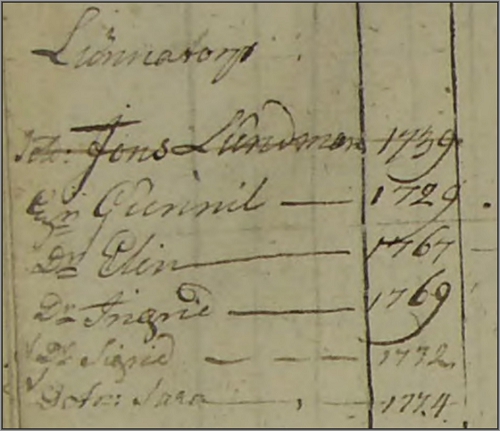 Lunnatorp
Jöns Lundman 1739
Gunnil — 1729
Dr Elin — 1767
Dr Ingrid — 1769
Dr Signd — 1772
Dotr: Sara — 1774